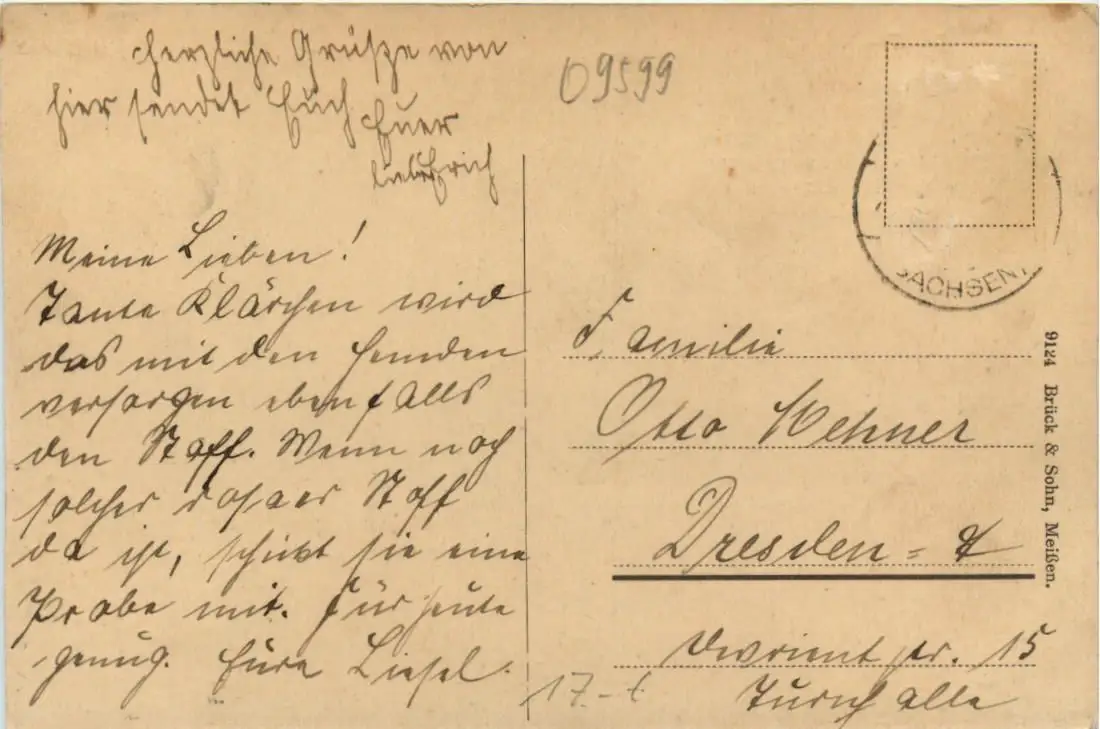 Herzliche Grüße von
hier sendet Euch Euer
lieber Erich
Meine Lieben!
Tante Klärchen wird
das mit den Hemden
versorgen ebenfalls
den Stoff. Wenn noch
solcher rosaer Stoff
da ist, schickt sie eine
Probe mit. Für heute
genug. Eure Liesel.
09599
SACHSEN
Familie
Otto Wehner
Dresden =
Devrientstr. 15
Turnhalle
17.-
9124 Brück & Sohn, Meißen.